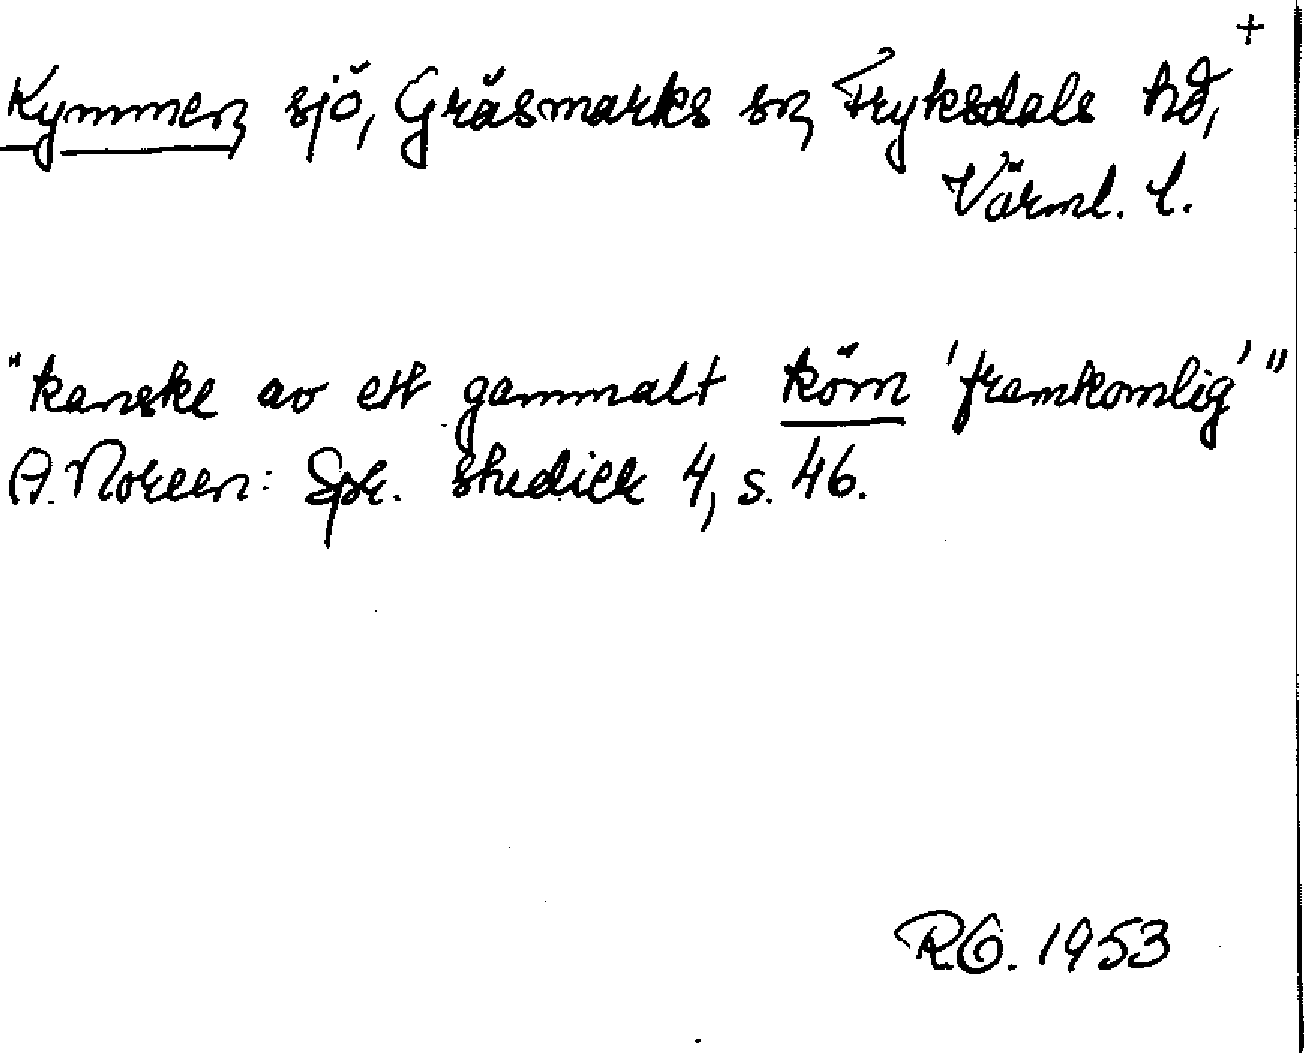 +
Kymmen, sjö, Gräsmarks sn, Fryksdals hd,
Värml. l.
"kanske av ett gammalt köm 'framkomlig'"
A. Noreen: Spr. studier 4, s. 46.
1953